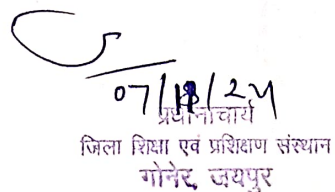 07/11/24
प्रधानाचार्य
जिला शिक्षा एवं प्रशिक्षण संस्थान
गोनेर, जयपुर